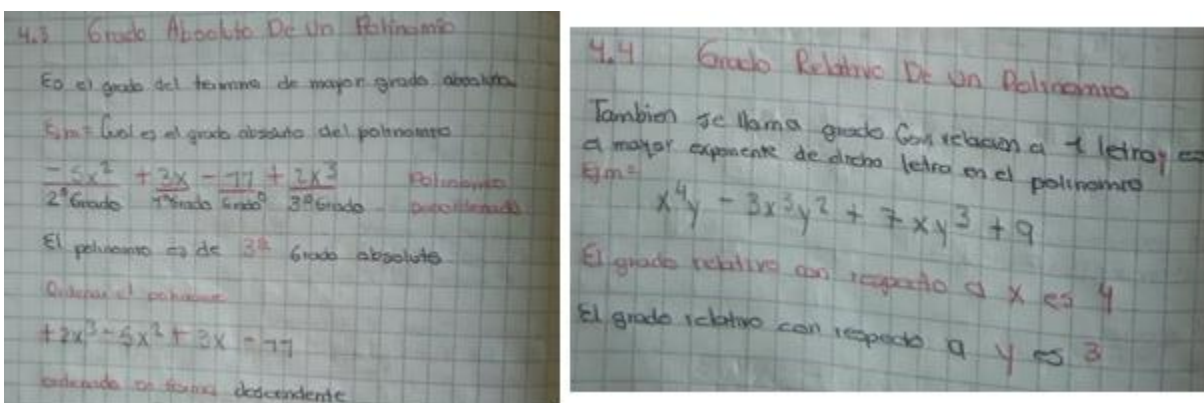 4.3 Grado Absoluto De Un Polinomio
Es el grado del termino de mayor grado absoluto
Ejm= Cual es el grado absoluto del polinomio
-5x² + 3x - 77 + 2x³ Polinomio
2º Grado 1º Grado Grado 0 3º Grado
El polinomio es de 3º Grado absoluto
Ordenar el polinomio
+2x³ - 5x² + 3x - 77
ordenado en forma descendente
4.4 Grado Relativo De Un Polinomio
Tambien se llama grado Con relacion a 1 letra y es
el mayor exponente de dicha letra en el polinomio
Ejm=
x⁴y - 3x³y² + 7xy³ + 9
El grado relativo con respecto a x es 4
El grado relativo con respecto a y es 3